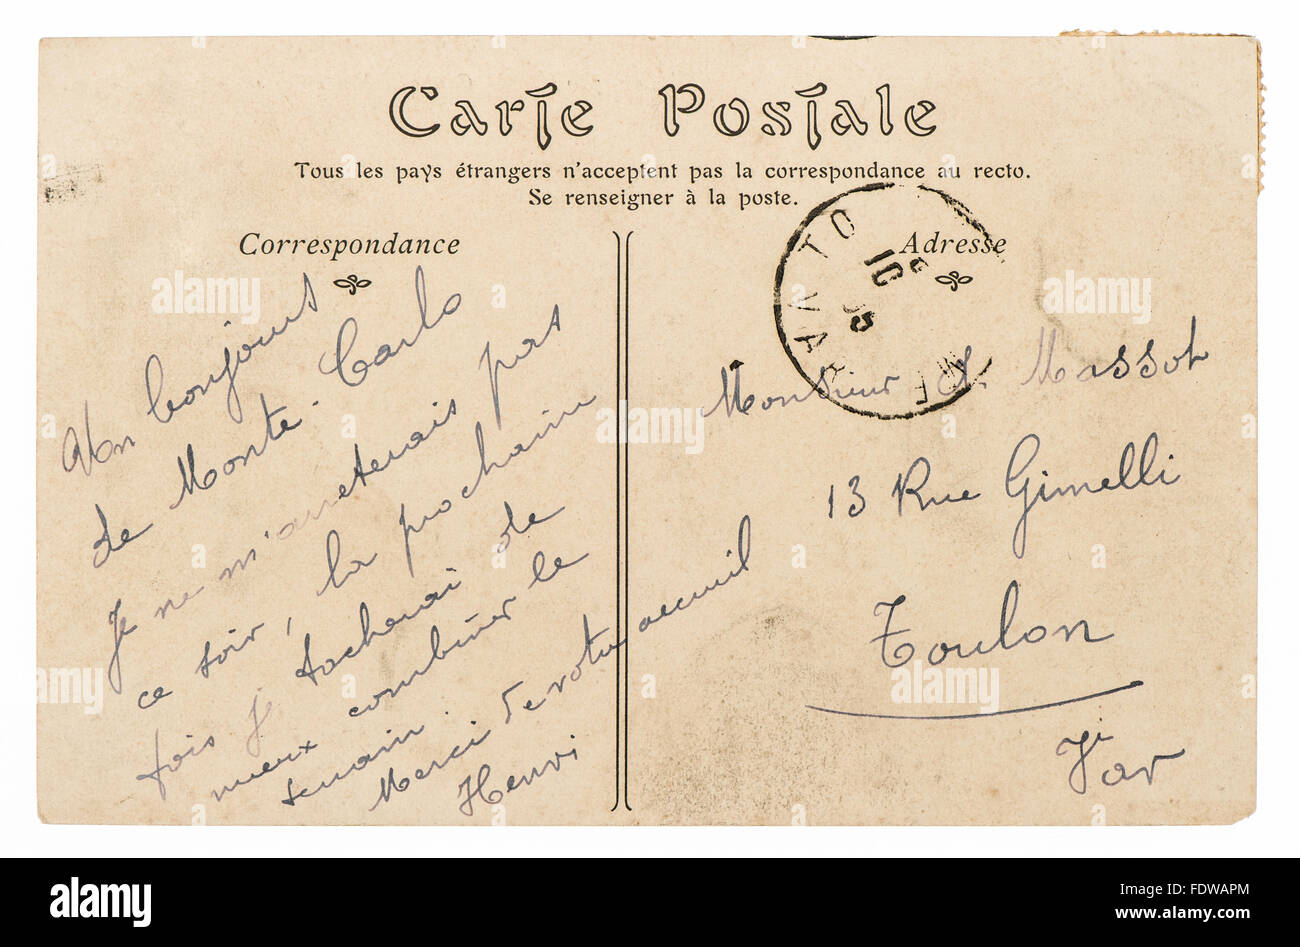 Carte Postale
Tous les pays étrangers n'acceptent pas la correspondance au recto.
Se renseigner à la poste.
Correspondance
Adresse
Un bonjour
de Monte-Carlo
Je ne m'arreterais pas
ce soir, la prochaine
fois je tacherai de
mieux combiner le
terrain
Merci de votre accueil
Henri
Monsieur J. Massot
13 Rue Gimelli
Toulon
Var
10
05
alamy
Image ID: FDWAPM
www.alamy.com